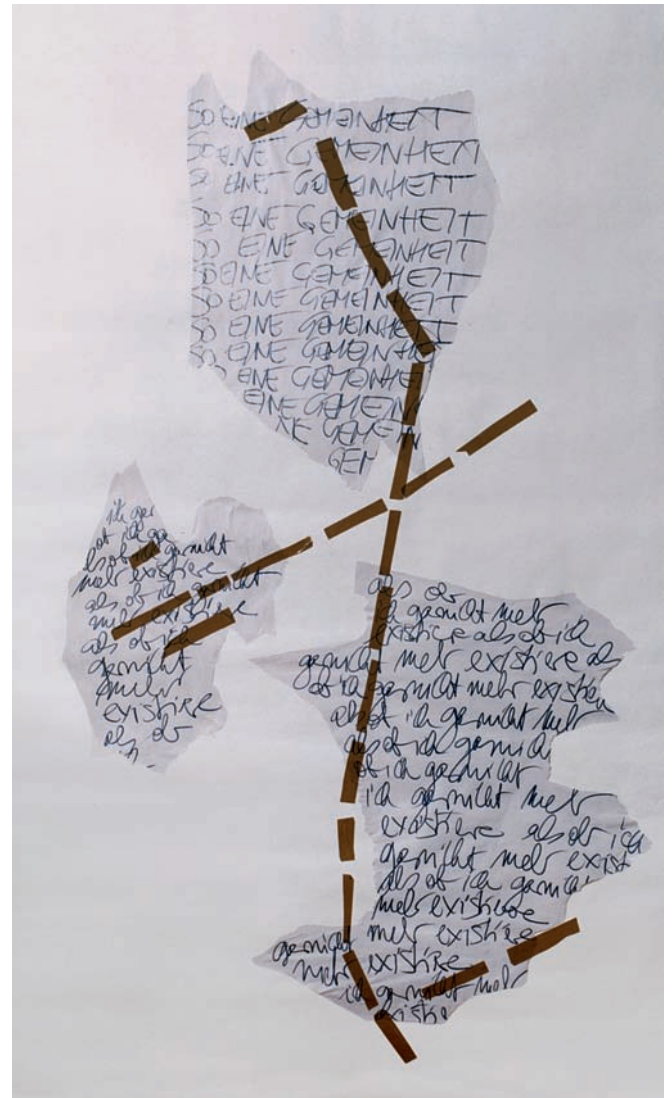 SO EINE GEMEINHEIT
SO EINE GEMEINHEIT
SO EINE GEMEINHEIT
SO EINE GEMEINHEIT
SO EINE GEMEINHEIT
SO EINE GEMEINHEIT
SO EINE GEMEINHEIT
SO EINE GEMEINHEIT
SO EINE GEMEINHEI
SO EINE GEMEINHEI
EINE GEMEIN
NE GEMEIN
GEM
ich gar
ob ich gar
als ob ich garnicht
mehr existiere
als ob ich garnicht
mehr existiere
als ob ich
garnicht
mehr
existiere
als ob
als ob
ich garnicht mehr
existiere als ob ich
garnicht mehr existiere als
ob ich garnicht mehr existier
als ob ich garnicht mehr
als ob ich garnich
ob ich garnicht
ich garnicht mehr
existiere als ob ich
garnicht mehr exist
als ob ich garnich
mehr existiere
mehr existiere
garnicht
mehr existiere
ich garnicht mehr
existie